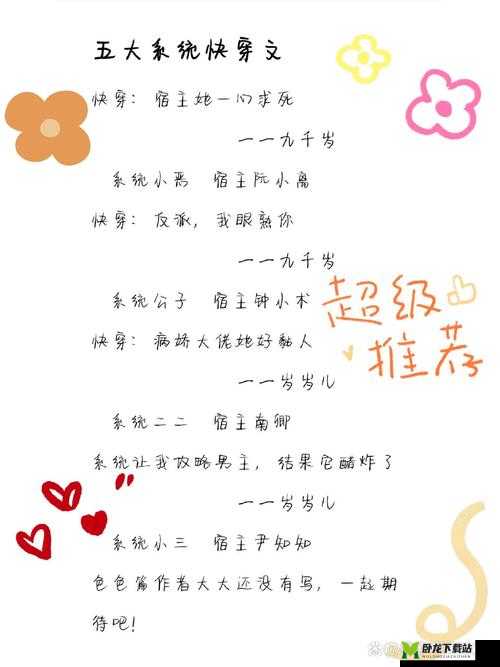 五大系统快穿文
快穿：宿主她一心求死
——九千岁
系统小恶 宿主阮小离
快穿：反派，我眼熟你
——九千岁
系统公子 宿主钟小术
快穿：病娇大佬她好黏人
——岁岁儿
系统二二 宿主南卿
系统让我攻略男主，结果它醋炸了
——岁岁儿
系统小三 宿主尹知知
色色篇作者大大还没有写，一起期
待吧！
超级
推荐
卧龙下载站